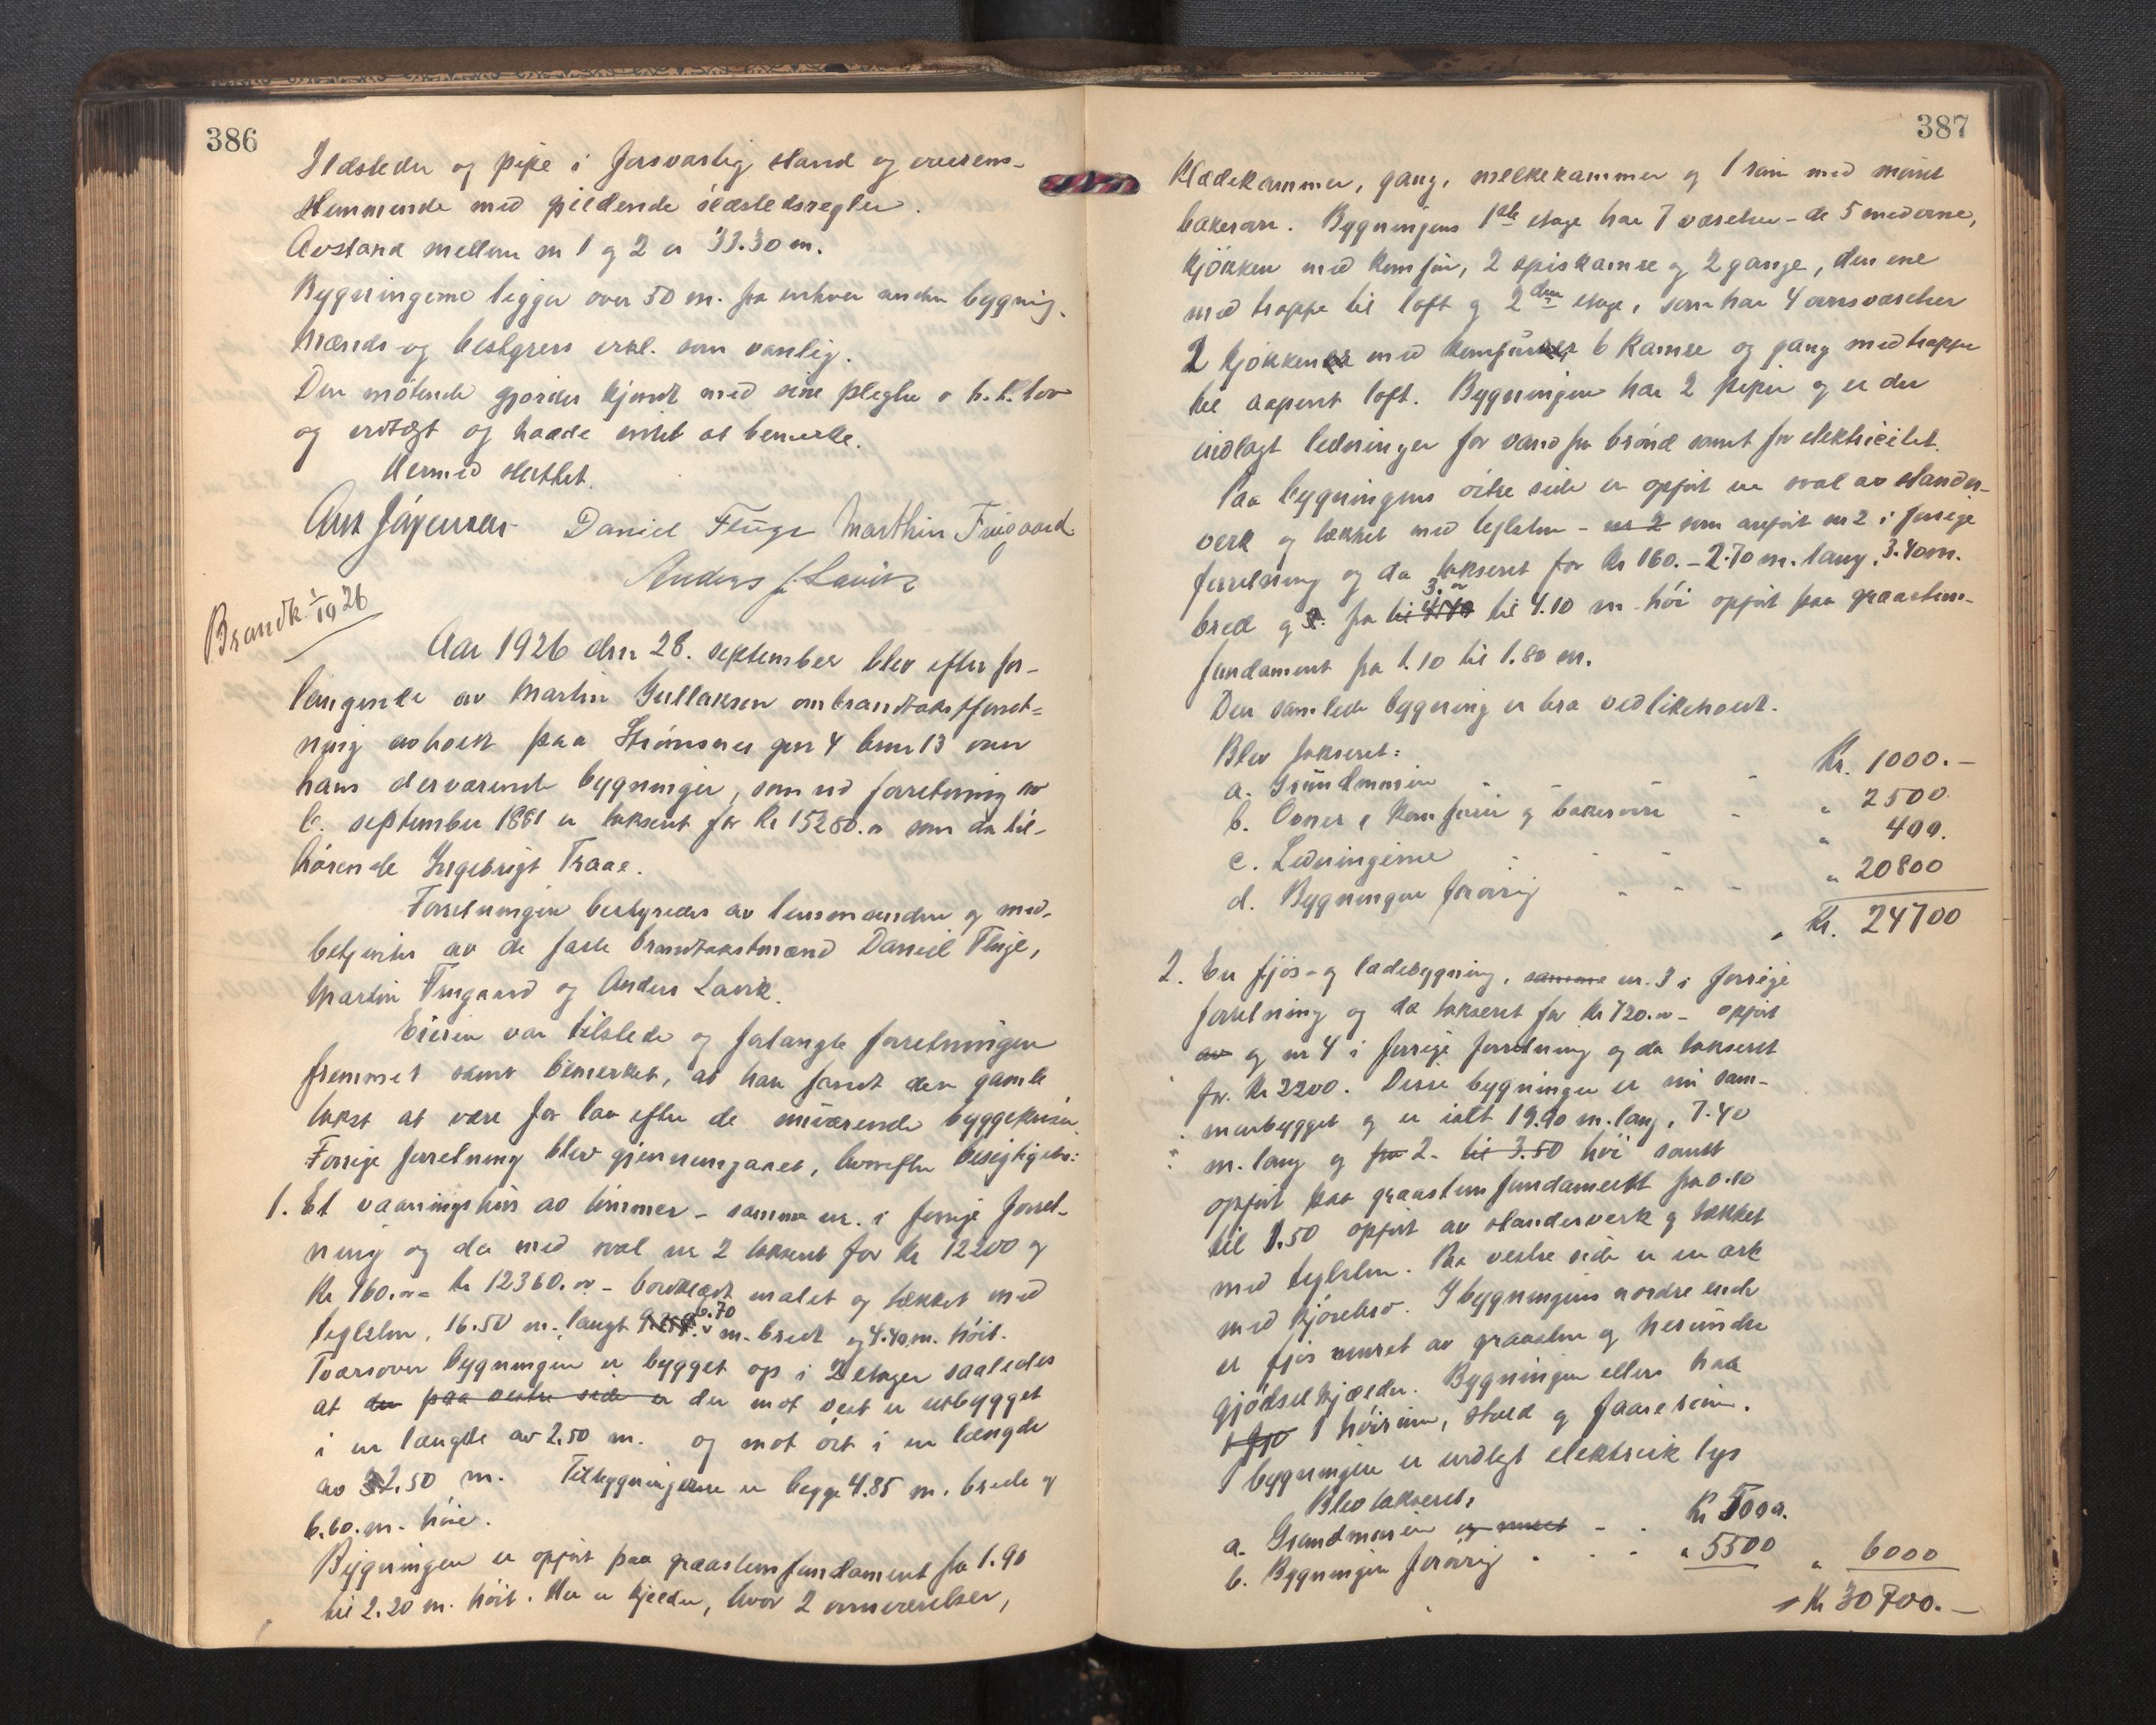 386
Ildsteder og pipe i forsvarlig stand og overens-
stemmende med gjeldende ildstedsregler.
Avstand mellem nr 1 og 2 er 33.30 m.
Bygningerne ligger over 50 m. fra enhver anden bygning.
Mænds og bestyrers erkl. som vanlig.
Den møtende gjordes kjendt med sine plegter e b.k. lov
og vedtægt og hadde intet at bemerke.
Hermed sluttet.
Jørgensen Daniel Fluge Marthin Trugaard
Anders J. Lavik
Brandk. 1/10 26
Aar 1926 den 28. september blev efter for-
langende av Martin Gullaksen om brandtakstforret-
ning avholdt paa Strømsnes gnr 4 bnr 13 over
hans derværende bygninger, som ved forretning av
6. september 1881 er taksert for kr 15280.00 som da til-
hørende Ingebrigt Traae.
Forretningen bestyredes av lensmanden og med-
betjentes av de faste brandtakstmænd Daniel Fluge,
Martin Trugaard og Anders Lavik.
Eieren var tilstede og forlangte forretningen
fremmet samt bemerket, at han fandt den gamle
takst at være for lav efter de nuværende byggepriser.
Forrige forretning blev gjennemgaaet, hvorefter besigtigedes:
1. Et vaaningshus av tømmer - samme nr. i forrige forret-
ning og da med sval nr 2 taksert for kr 12200 og
kr 160.00 = kr 12360.00 - bordklædt malet og tækket med
teglsten, 16.50 m. langt 6.70 m. bredt og 4.40 m. høit.
Tversover bygningen er bygget op i 2 etager saaledes
at den paa vestre side er der mot vest er utbygget
i en længde av 2.50 m. og mot øst i en længde
av 2.50 m. Tilbygningerne er begge 4.85 m. brede og
6.60. m. høie.
Bygningen er opført paa graastensfundament fra 1.90
til 2.20 m. høit. Her er kjelder, hvor 2 ovnsværelser,
387
Klædekammer, gang, melkekammer og 1 rum med muret
bakerovn. Bygningens 1ste etage har 7 værelser - de 5 med ovne,
kjøkken med komfur, 2 spiskamre og 2 gange, den ene
med trappe til loft og 2den etage, som har 4 ovnsværelser
2 kjøkkener med komfurer 6 kamre og gang med trappe
til aapent loft. Bygningen har 2 piper og er der
indlagt ledninger for vand fra brønd samt for elektricitet.
Paa bygningens østre side er opført en sval av stander-
verk og tækket med teglsten - nr 2 som anført nr 2 i forrige
forretning og da taksert for kr 160. - 2.70 m. lang, 3.40 m.
bred og fra 3.00 til 4.10 m høi opført paa graasten-
fundament fra 1.10 til 1.80 m.
Den samlede bygning er bra vedlikeholdt.
Blev taksert:
a. Grundmuren Kr. 1000.-
b. Ovner, komfurer og bakerovn " 2500.
c. Ledningerne " 400.
d. Bygningen forøvrig " 20800
Kr. 24700
2. En fjøs- og ladebygning, samme nr. 3 i forrige
forretning og da taksert for kr 720.00 - opført
av og nr 4 i forrige forretning og da taksert
for kr 2200. Disse bygninger er nu sam-
menbygget og er ialt 19.90 m. lang, 7.40
m. lang og fra 2. til 3.50 høi samt
opført paa graastensfundament fra 0.10
til 1.50 opført av standerverk og tækket
med teglsten. Paa vestre side er en ark
med kjørebro. I bygningens nordre ende
er fjøs muret av graasten og herunder
gjødselkjælder. Bygningen ellers har
1 høirum, stald og faarerum.
I bygningen er indlagt elektrisk lys
Blev taksert:
a. Grundmuren og muret Kr 500.
b. Bygningen forøvrig " 5500 " 6000
Kr 30700.-